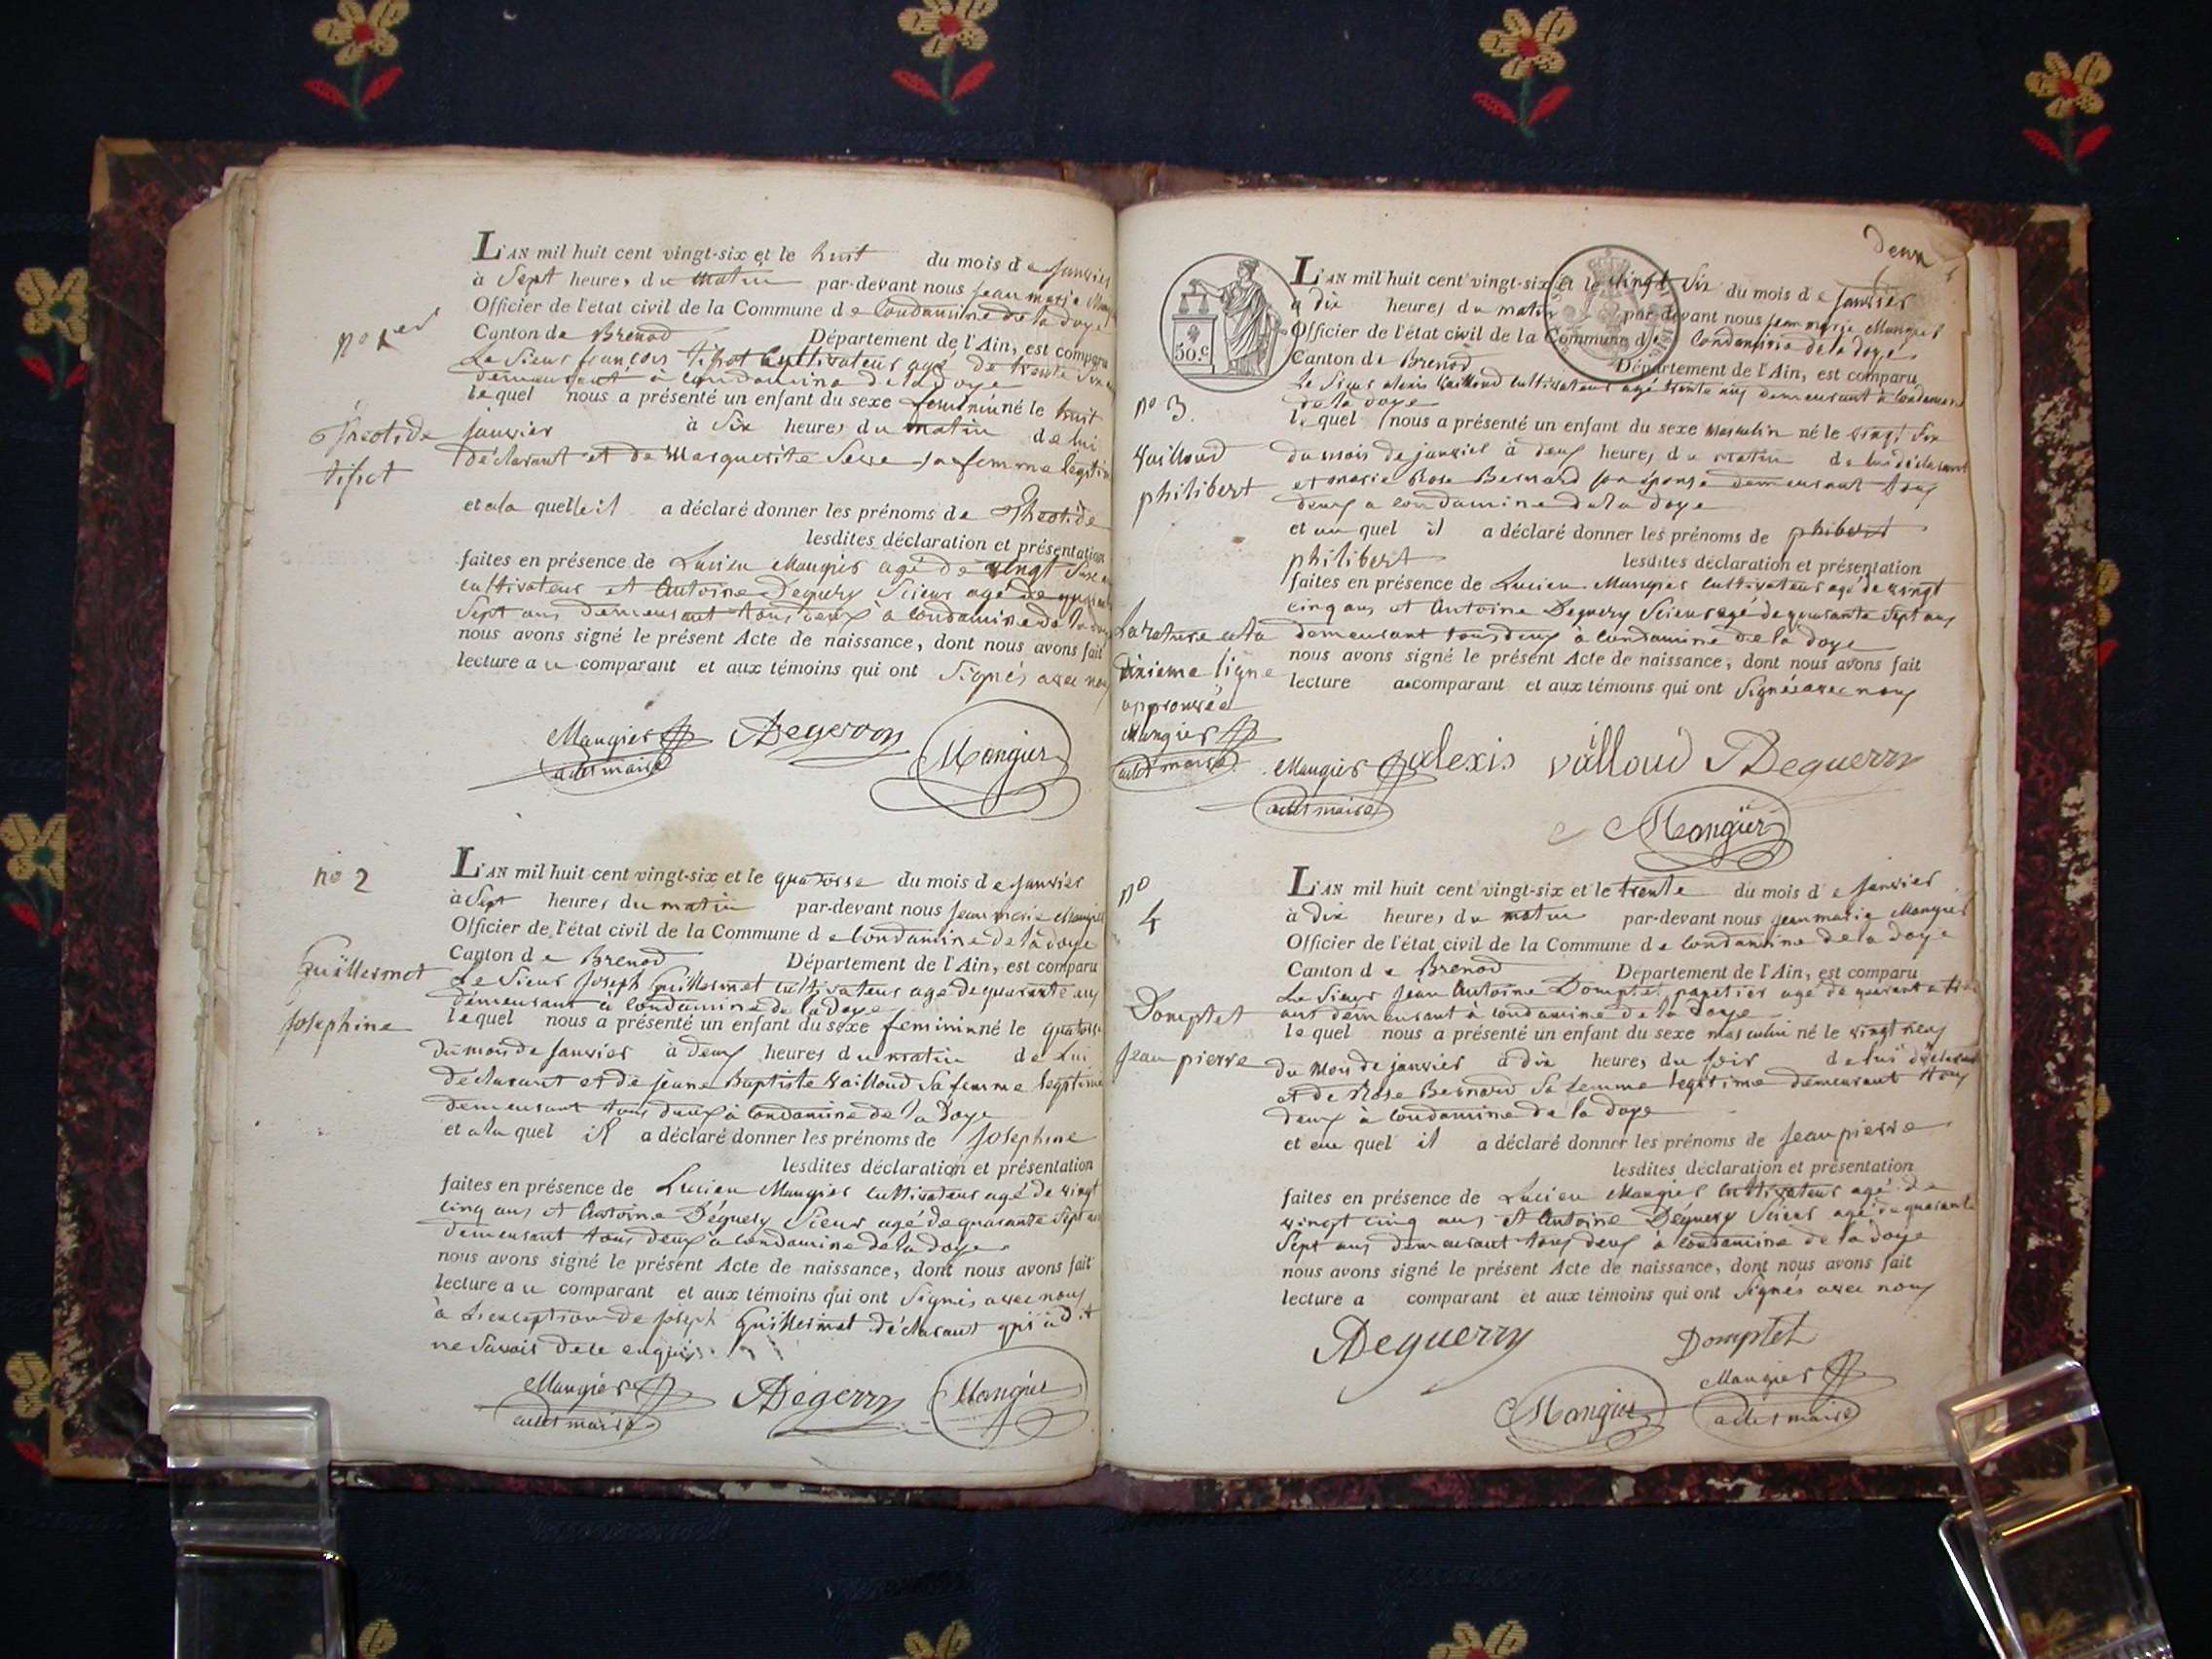 no 1er
Theotide
tifiet
L'AN mil huit cent vingt-six et le huit du mois de janvier
à Sept heures du matin par-devant nous jean marie
Officier de l'état civil de la Commune de Condamine de la doye
Canton de Brenod Département de l'Ain, est comparu
Le Sieur françois Cultivateur agé de trente
demeurant à Condamine de la doye
lequel nous a présenté un enfant du sexe feminin né le huit
janvier à Six heures du matin de lui
déclarant et de Marguerite Serre sa femme legitime
et a la quelle il a déclaré donner les prénoms de Theotide
lesdites déclaration et présentation
faites en présence de Lucien Maugier agé de vingt
cultivateur et Antoine Deguery Scieur agé de quarante
Sept ans demeurant tous deux à Condamine de la doye
nous avons signé le présent Acte de naissance, dont nous avons fait
lecture au comparant et aux témoins qui ont Signés avec nous
Maugier Degerry Mangier
adet maire
no 2
Guillermet
Josephine
L'AN mil huit cent vingt-six et le quatorse du mois de janvier
à Sept heures du matin par-devant nous jean marie Maugier
Officier de l'état civil de la Commune de Condamine de la doye
Canton de Brenod Département de l'Ain, est comparu
Le Sieur joseph Guillermet cultivateur agé de quarante ans
demeurant à Condamine de la Doye
lequel nous a présenté un enfant du sexe feminin né le quatorse
du mois de janvier à deux heures du matin de Lui
déclarant et de jeane Baptiste Vailloud Sa femme legitime
demeurant tous deux à Condamine de la Doye
et a la quel il a déclaré donner les prénoms de josephine
lesdites déclaration et présentation
faites en présence de Lucien Maugier Cultivateur agé de vingt
cinq ans et Antoine Déguery Sieur agé de quarante Sept ans
demeurant tous deux à Condamine de la doye
nous avons signé le présent Acte de naissance, dont nous avons fait
lecture au comparant et aux témoins qui ont Signés avec nous
à L'exception de joseph Guillermet déclarant qui a dit
ne Savoir de ce enquis
Maugier Dégerry Mangier
adet maire
deux
50.c
no 3.
Vailloud
philibert
L'AN mil huit cent vingt-six et le vingt Six du mois de janvier
a dix heures du matin par-devant nous jean marie Maugier
Officier de l'état civil de la Commune de Condamine de la doye
Canton de Brenod Département de l'Ain, est comparu
Le Sieur alexis Vailloud Cultivateur agé trente ans demeurant à Condamine
de la doye
lequel nous a présenté un enfant du sexe masculin né le vingt Six
du mois de janvier à deux heures du matin de lui déclarant
et marie Rose Bernard son épouse demeurant tous
deux a Condamine de la doye
et au quel il a déclaré donner les prénoms de phibert
philibert lesdites déclaration et présentation
faites en présence de Lucien Maugier Cultivateur agé de vingt
cinq ans et Antoine Deguery Scieur agé de quarante Sept ans
demeurant tous deux à Condamine de la doye
nous avons signé le présent Acte de naissance, dont nous avons fait
lecture au comparant et aux témoins qui ont Signés avec nous
La rature a la
dixieme ligne
approuvée
Maugier
adet maire
Maugier alexis vailloud Deguerry
adet maire
Mangier
no
4
Domptet
jean pierre
L'AN mil huit cent vingt-six et le trente du mois de janvier
à dix heures du matin par-devant nous jean marie Maugier
Officier de l'état civil de la Commune de Condamine de la doye
Canton de Brenod Département de l'Ain, est comparu
Le Sieur jean Antoine Domptet papetier agé de quarante
ans demeurant à Condamine de la Doye
lequel nous a présenté un enfant du sexe masculin né le vingt neuf
du Mois de janvier a dix heures du soir de lui déclarant
et de Rose Bernard Sa femme legitime demeurant tous
deux à Condamine de la doye
et au quel il a déclaré donner les prénoms de jean pierre
lesdites déclaration et présentation
faites en présence de Lucien Maugier Cultivateur agé de
vingt cinq ans et Antoine Déguery Scieur agé de quarante
Sept ans demeurant tous deux à Condamine de la doye
nous avons signé le présent Acte de naissance, dont nous avons fait
lecture a comparant et aux témoins qui ont Signés avec nous
Deguerry Domptet
Mangier Maugier
adet maire